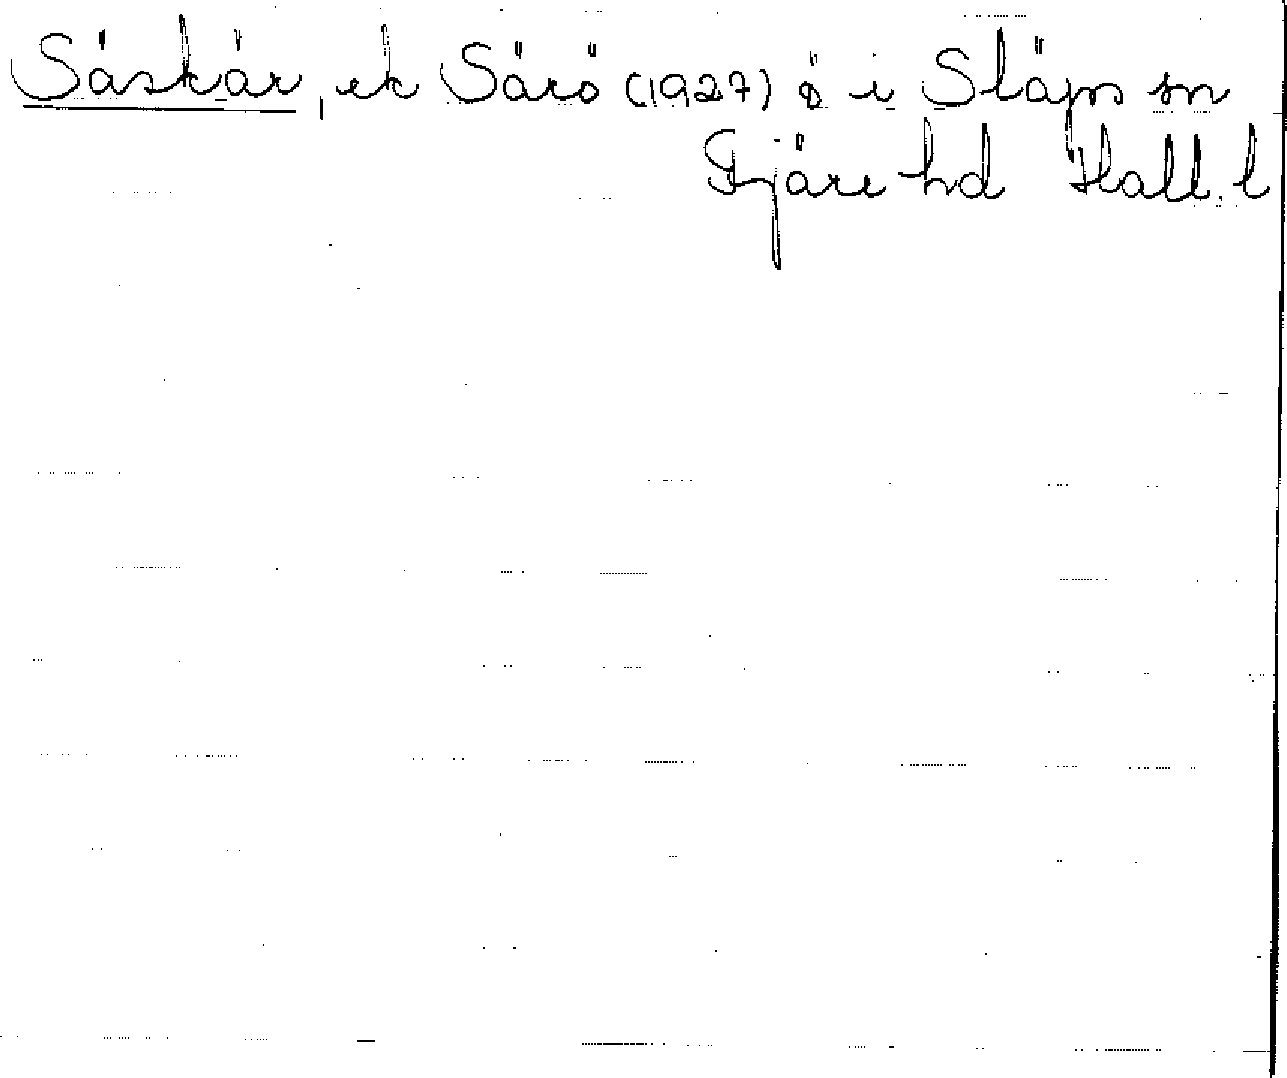 Säskär, ek Särö (1927) ö i Släps sn
Fjäre hd Hall. l